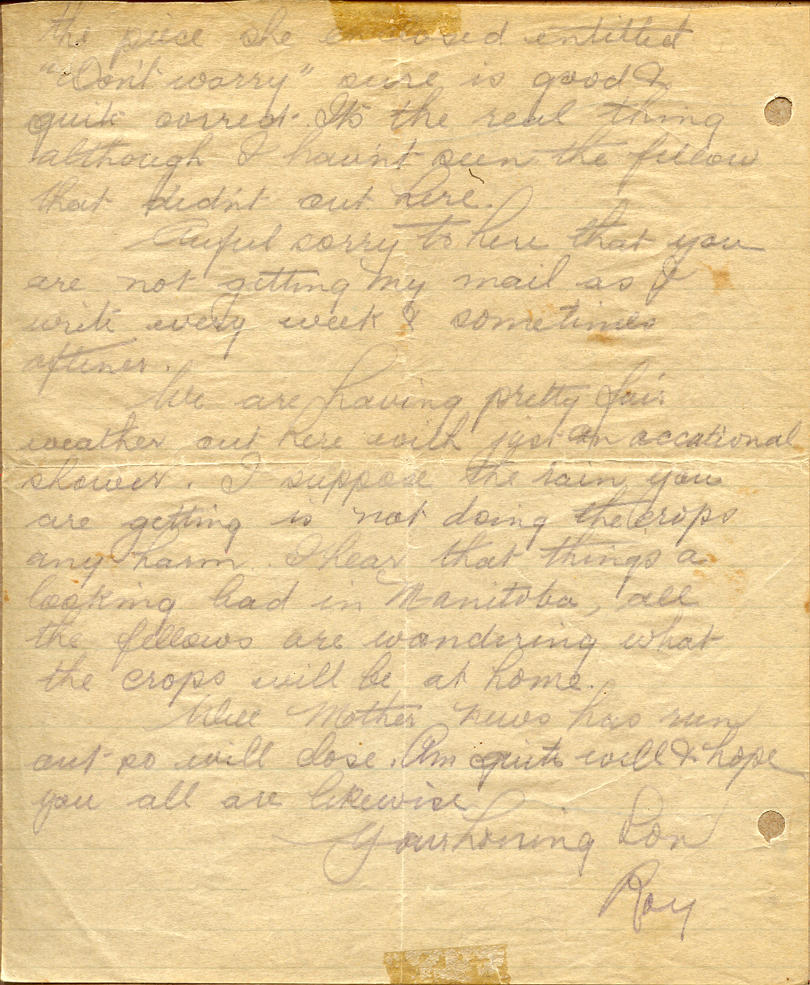 the piece she enclosed entitled
"Don't worry" sure is good &
quite correct. It's the real thing
although I hav'nt seen the fellow
that did'nt out here.
Awful sorry to here that you
are not getting my mail as I
write every week & sometimes
oftener.
We are having pretty fair
weather out here with just an occational
shower. I suppose the rain you
are getting is not doing the crops
any harm. I hear that things a
looking bad in Manitoba, all
the fellows are wondering what
the crops will be at home.
Well Mother news has run
out so will close. Am quite well & hope
you all are likewise
Your loving Son
Roy